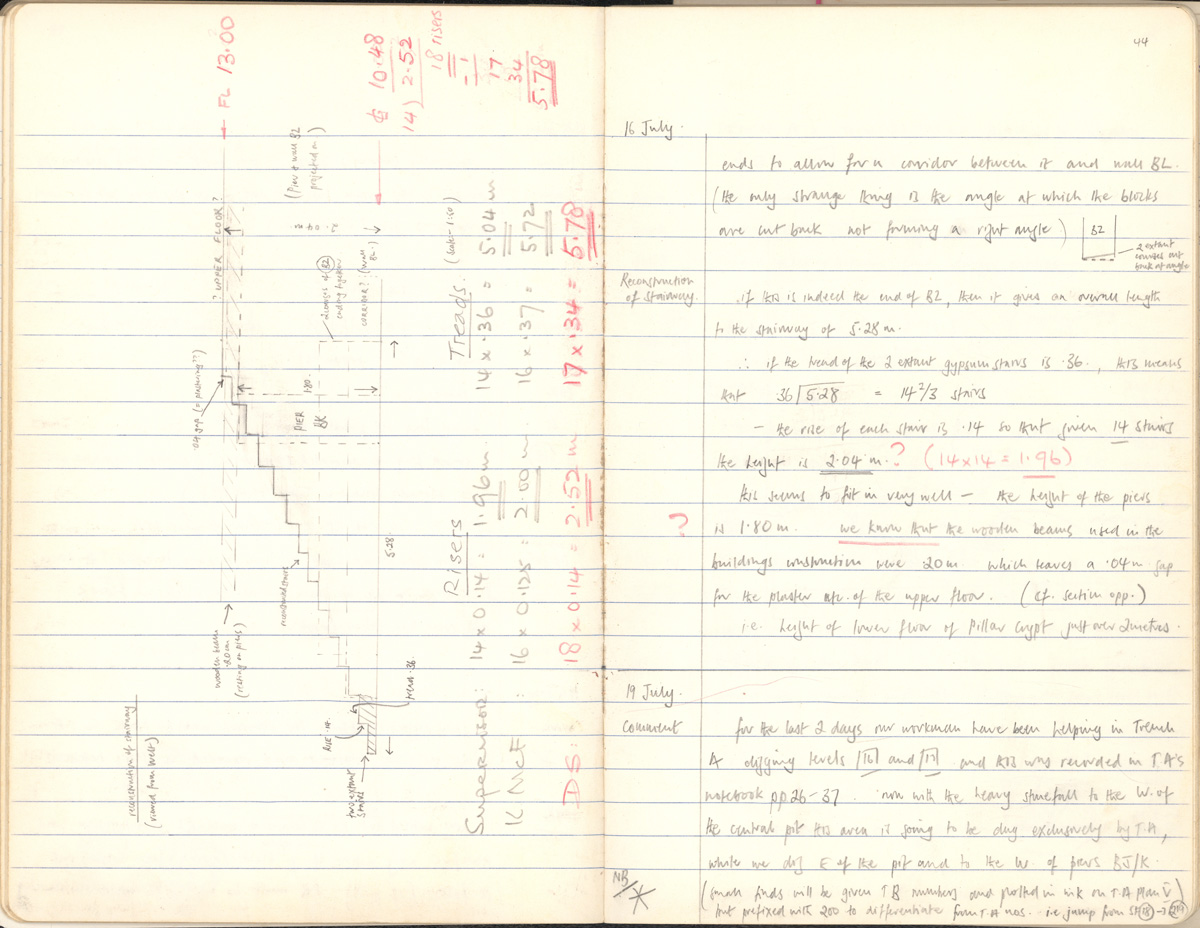 FL 13.00
¢ 10.48
14) 2.52
18 risers
- 1
17
34
5.78
(Pier & wall BL
projected on)
? UPPER FLOOR ?
2 courses of B2
ending together
CORRIDOR? (wall BL.)
.04 gap (= plastering??)
1.80.
PIER
BK
reconstructed stairs
5.28
wooden beam
.20cm
(resting on piers)
RISE .14.
tread .36
two extant
stairs
reconstruction of stairway
(viewed from West)
Risers
Treads
(scale - 1:50)
Supervisor: 14 x 0.14 = 1.96 m
14 x .36 = 5.04 m
K McF: 16 x 0.125 = 2.00 m
16 x .37 = 5.72
DS: 18 x 0.14 = 2.52 m
17 x .34 = 5.78
44
16 July.
ends to allow for a corridor between it and wall BL.
(the only strange thing is the angle at which the blocks
are cut back not forming a right angle)
B2
2 extant
courses cut
back at angle
Reconstruction
of stairway.
if this is indeed the end of B2, then it gives an overall length
to the stairway of 5.28 m.
∴ if the tread of the 2 extant gypsum stairs is .36., this means
that 36 | 5.28 = 14 2/3 stairs
– the rise of each stair is .14 so that given 14 stairs
the height is 2.04 m. ? (14x14 = 1.96)
this seems to fit in very well – the height of the piers
? is 1.80 m. we know that the wooden beams used in the
buildings construction were .20m. which leaves a .04m gap
for the plaster etc. of the upper floor. (cf. section opp.)
i.e. height of lower floor of Pillar Crypt just over 2 metres.
19 July.
Comment
for the last 2 days our workman have been helping in Trench
A digging levels 16 and 17 and this was recorded in T.A's
notebook pp.26-37 now with the heavy stonefall to the W. of
the central pit this area is going to be dug exclusively by T.A,
while we dig E of the pit and to the W. of piers BJ/K.
NB
*
(small finds will be given TB numbers and plotted in ink on T.A plan V
but prefixed with 200 to differentiate from T.A nos. i.e jump from SF